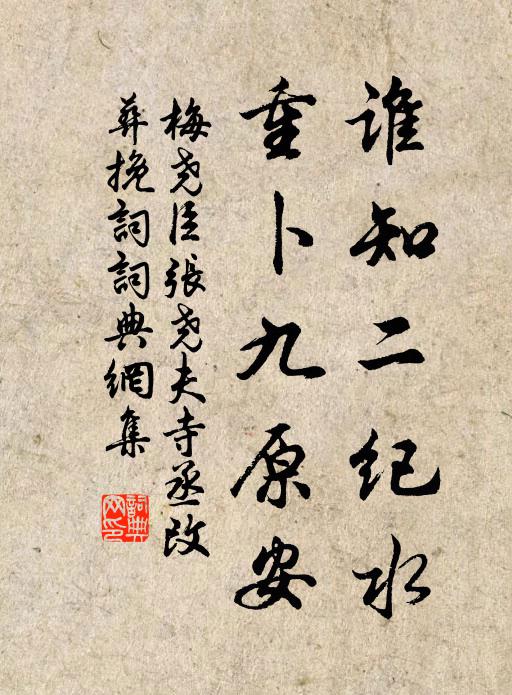 誰知二紀水
重卜九原安
梅堯臣張堯夫寺丞改
葬挽詞詞典網集
詞典
网印